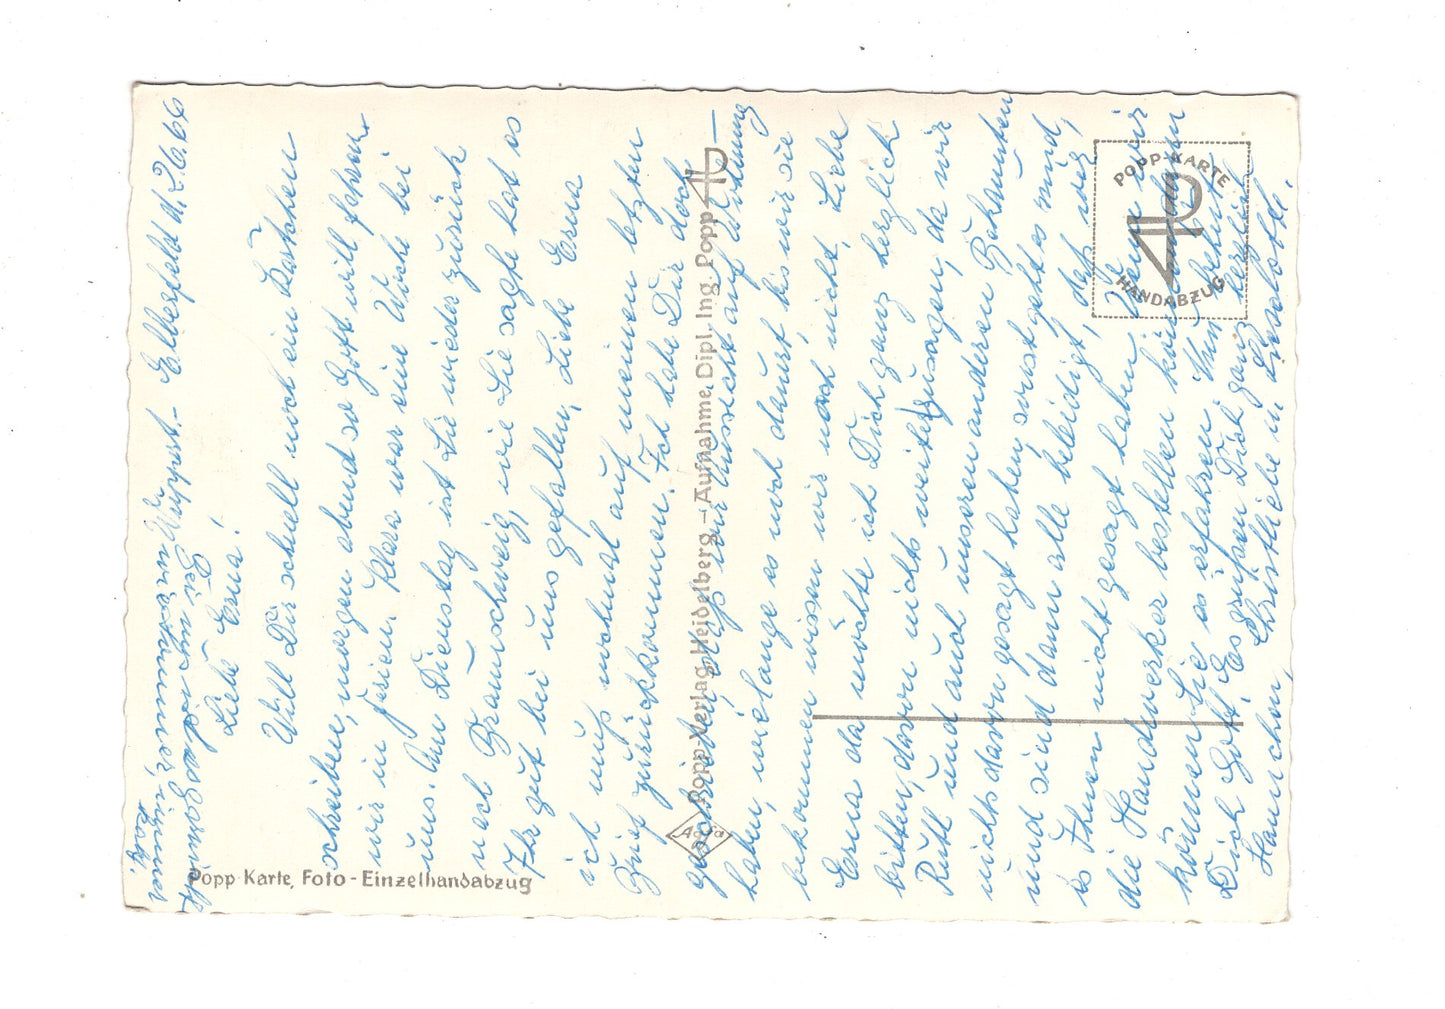 Elberfeld d. 26.6.
Liebe Erna!
Will Dir schnell noch ein Kärtchen
schreiben, morgen abend so Gott will fahren
wir in Ferien. Klara war eine Woche bei
uns. Am Dienstag ist sie wieder zurück
nach Braunschweig, wie Sie sagte hat es
Ihr gut bei uns gefallen, Liebe Erna
ich muß nochmal auf meinen letzten
Brief zurückkommen. Ich habe Dir doch
geschrieben, daß wir Aussicht auf Wohnung
haben, wielange es noch dauert bis wir sie
bekommen wissen wir noch nicht, Liebe
Erna da möchte ich Dich ganz herzlich
bitten, davon nichts weiterzusagen, da wir
Ruth und auch unseren anderen Bekannten
nichts davon gesagt haben, sonst geht es rund,
und sind dann alle beleidigt, daß wir
es Ihnen nicht gesagt haben, Wenn wir
die Handwerker bestellen können
können Sie es erfahren. Nun behüt
Dich Gott! Es grüßen Dich ganz herzlich
Hannchen, Christliebe u. Lieselotte,
Popp-Karte, Foto-Einzelhandabzug
Agfa
Popp-Verlag, Heidelberg – Aufnahme Dipl. Ing. Popp
POPP-KARTE
HANDABZUG